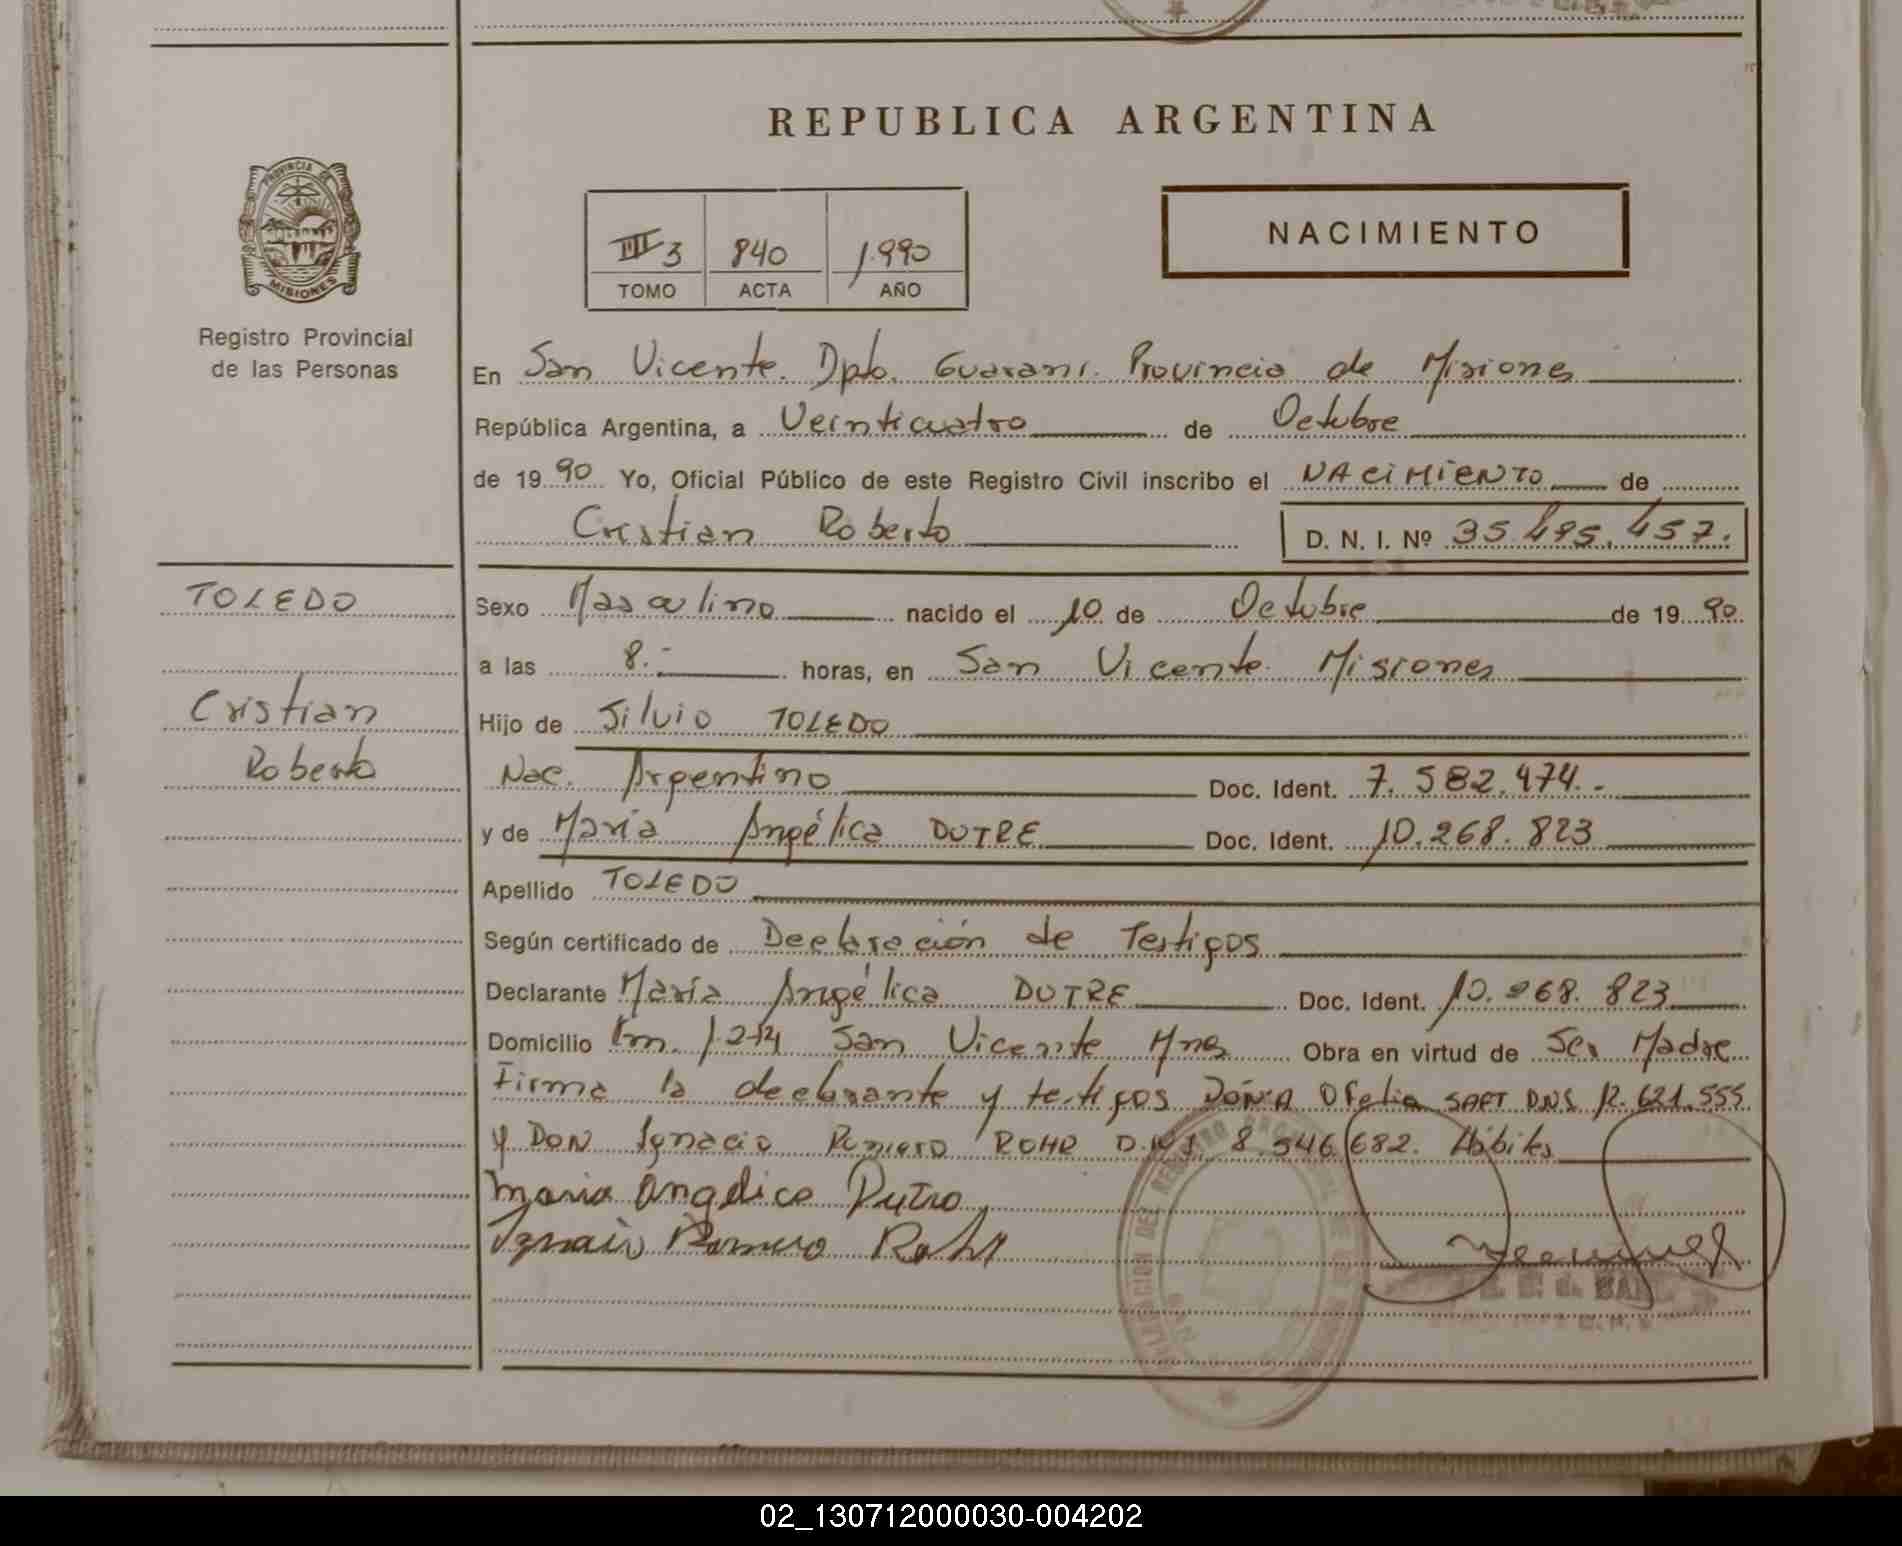 REPUBLICA ARGENTINA
PROVINCIA DE MISIONES
Registro Provincial
de las Personas
III 3 840 1.990
TOMO ACTA AÑO
NACIMIENTO
En San Vicente. Dpto. Guarani. Provincia de Misiones
República Argentina, a Veinticuatro de Octubre
de 1990 Yo, Oficial Público de este Registro Civil inscribo el NACIMIENTO de
Cristian Roberto D. N. I. Nº 35.495.457.
TOLEDO
Cristian
Roberto
Sexo Masculino nacido el 10 de Octubre de 1990
a las 8.- horas, en San Vicente Misiones
Hijo de Silvio TOLEDO
Nac. Argentino Doc. Ident. 7.582.474.-
y de María Angélica DUTRE Doc. Ident. 10.268.823
Apellido TOLEDO
Según certificado de Declaración de Testigos
Declarante María Angélica DUTRE Doc. Ident. 10.268.823
Domicilio Km. 1.214 San Vicente Mnes Obra en virtud de Ser Madre
Firma la declarante y testigos DOÑA Ofelia DNI 12.621.555
y DON Ignacio Romero ROHR D.N.I. 8.546.682. Hábiles
Maria Angelica Dutra
Ignacio Romero Rohr
02_130712000030-004202